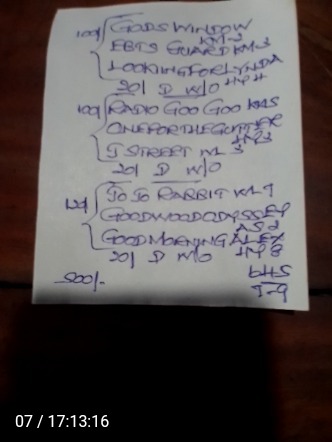 100/ GODS WINDOW
KM-3
EBTS GUARD KM-3
LOOKING FOR LYNDA
HP4
20/ D W/O
100/ RADIO GOO GOO KHS
ONE FOR THE GUTTER
J STREET ML 3 HP3
20/ D W/O
120/ JO JO RABBIT KL9
GOODWOOD ODYSSEY
AS2
GOOD MORNING ALEX
20/ D W/O HP8
500/-
6HS
T-9
07 / 17:13:16